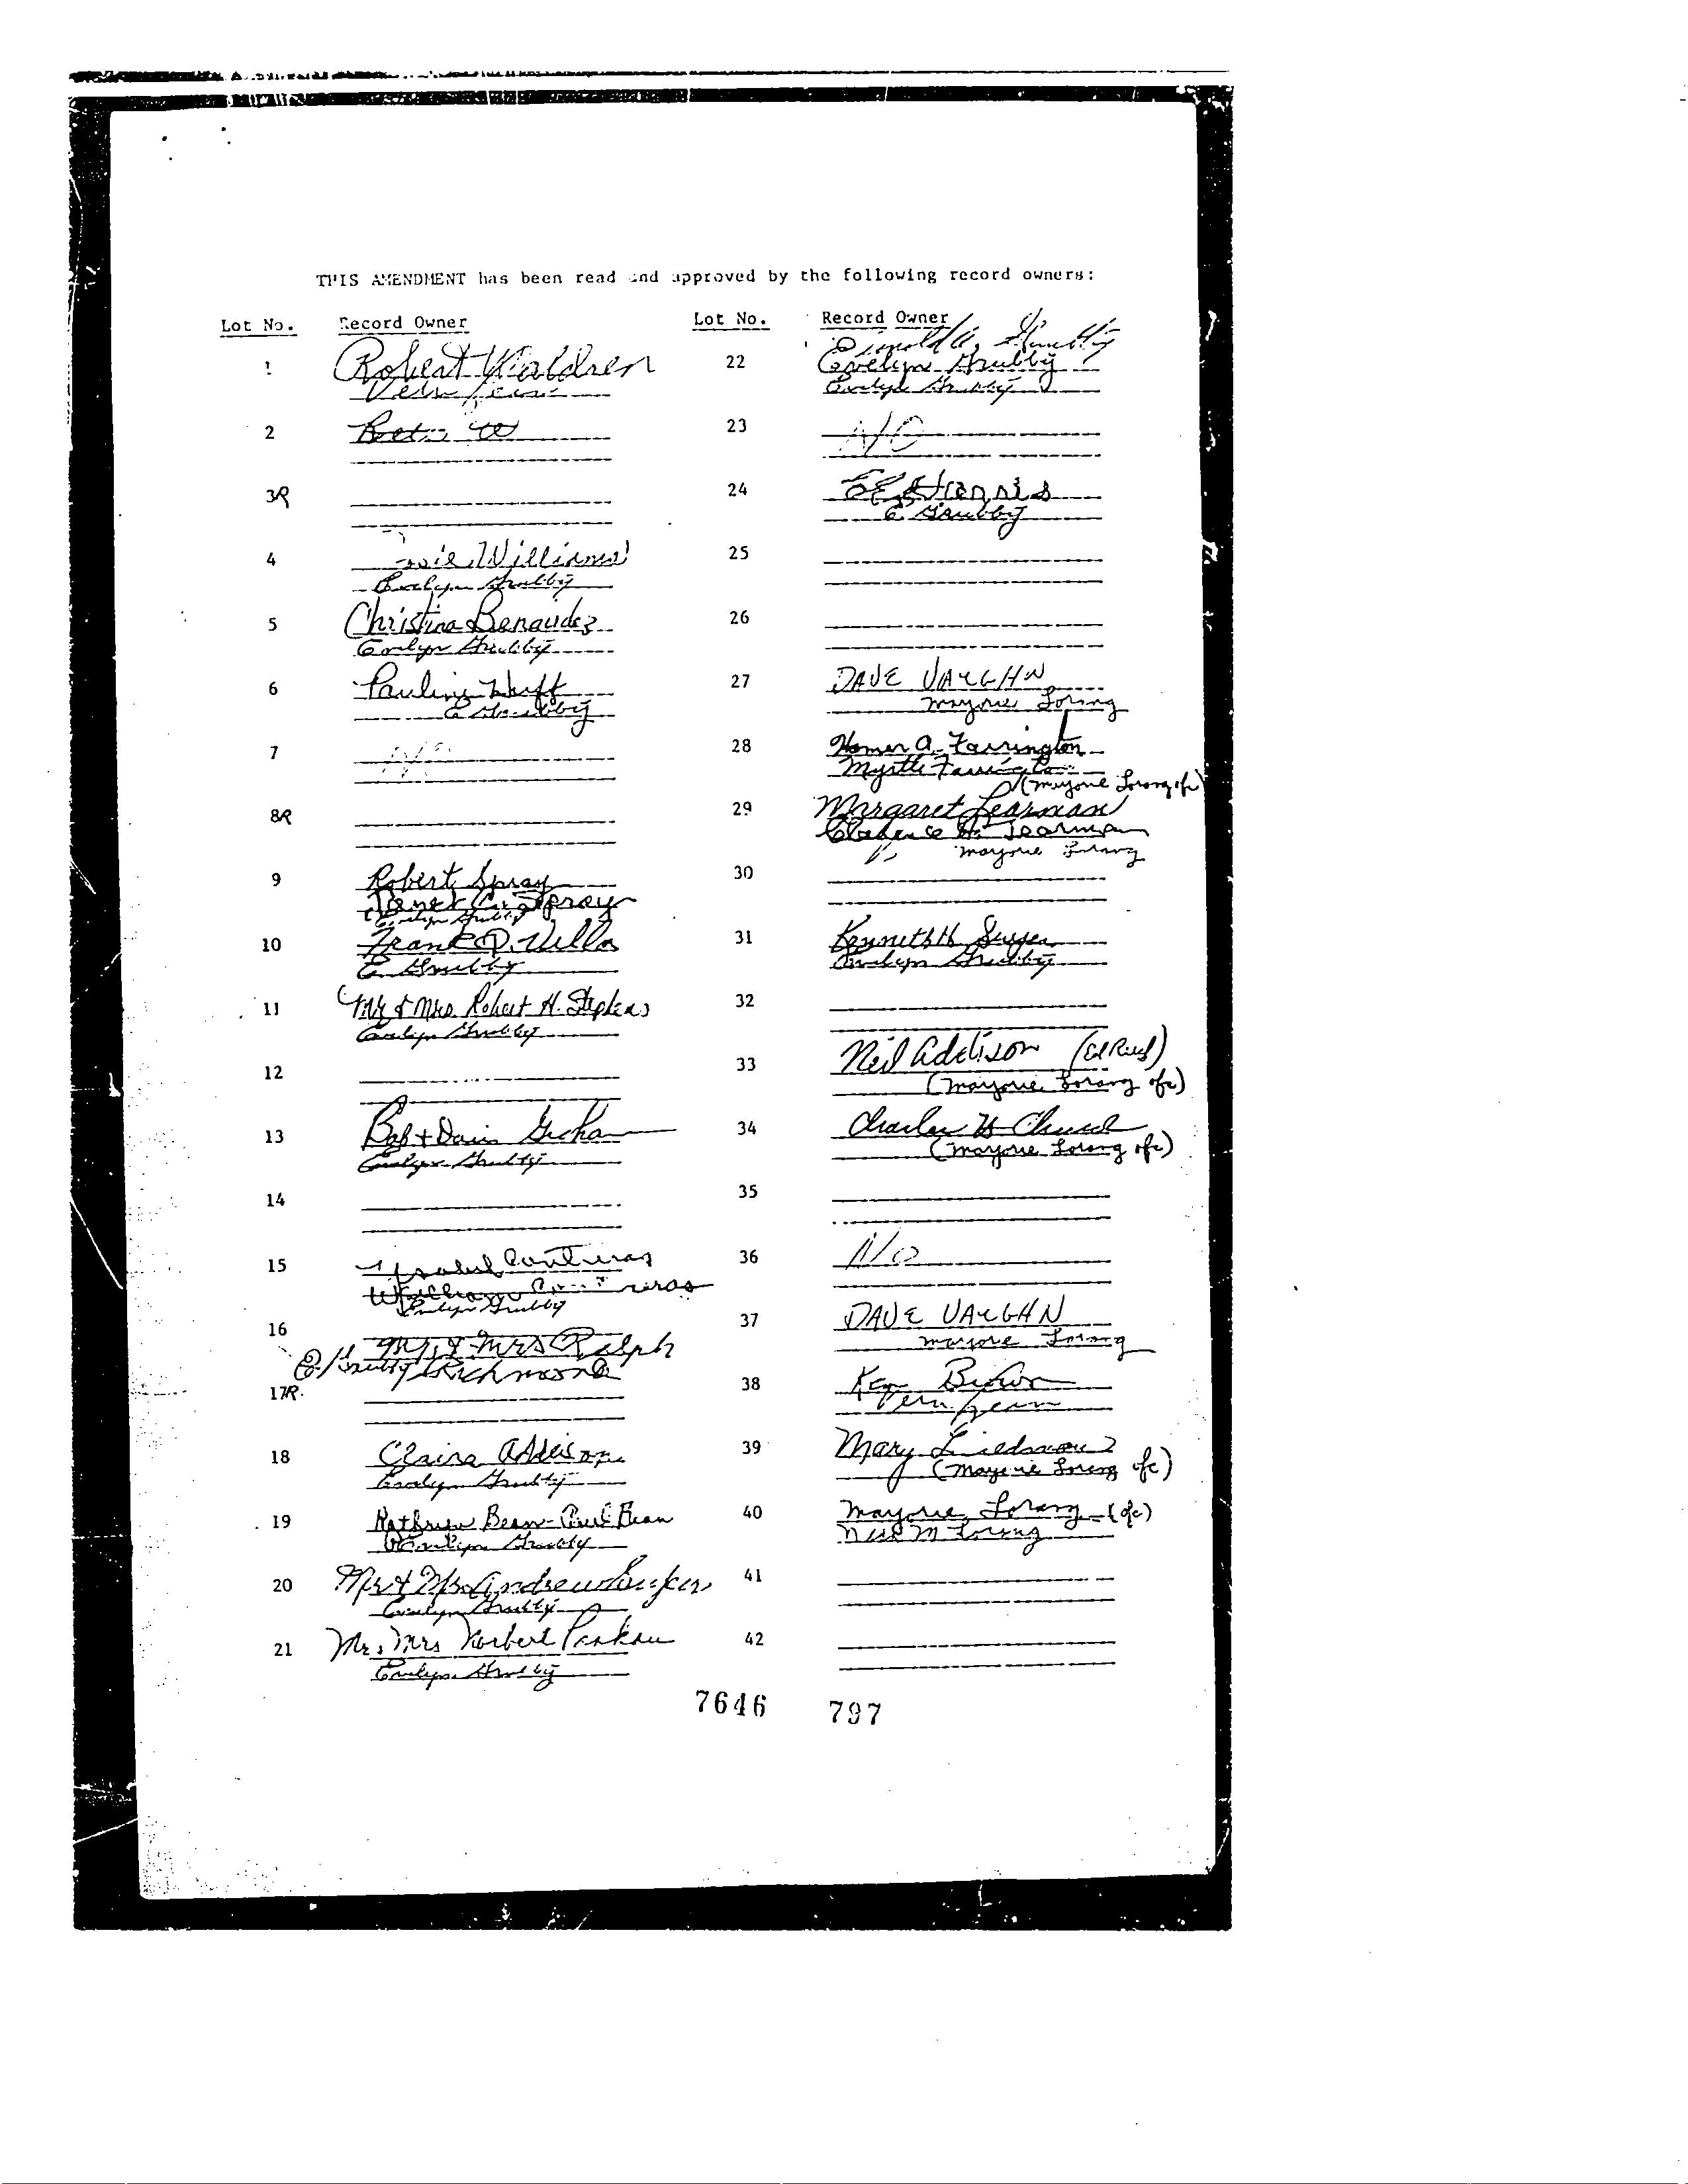 THIS AMENDMENT has been read and approved by the following record owners:
Lot No. Record Owner Lot No. Record Owner
1 Robert Waldren
Vern
2
3R
4 Williams
Evelyn Grubby
5 Christina Benaudez
Evelyn Grubby
6 Pauline Huft
E Grubby
7 NO
8R
9 Robert Spray
Janet C. Spray
Evelyn Grubby
10 Frank D. Villa
E. Grubby
11 Mr & Mrs. Robert H. Stephens
Evelyn Grubby
12
13 Bob + Doris
Evelyn Grubby
14
15 Ysabel Contreras
William Contreras
Evelyn Grubby
16 Mr. & Mrs Ralph
E/Grubby Richmond
17R.
18 Claire Addison
Evelyn Grubby
19 Kathryn Bean - Paul Bean
Evelyn Grubby
20 Mr & Mrs Andrew
Evelyn Grubby
21 Mr. Mrs Norbert
Evelyn Grubby
22 Grubby
Evelyn Grubby
Evelyn Grubby
23 NO
24 Harris
E Grubby
25
26
27 DAVE VAUGHN
Marjorie Lorang
28 Homer A. Farrington
Myrtle Farrington
(Marjorie Lorang ofc)
29 Margaret Learman
Clarence H. Learman
Marjorie Lorang
30
31 Kenneth H
Evelyn Grubby
32
33 Neil Addison
(Marjorie Lorang ofc)
34 Charles H
(Marjorie Lorang ofc)
35
36 NO
37 DAVE VAUGHN
Marjorie Lorang
38 Ken Brown
Vern
39 Mary
(Marjorie Lorang ofc)
40 Marjorie Lorang (ofc)
M Lorang
41
42
7646 797